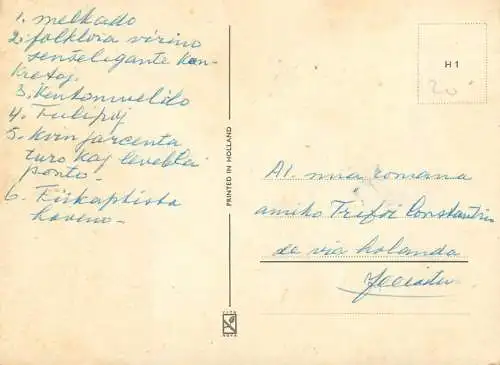 1. melkado
2. folklora virino
senŝeligante kan-
kretoj.
3. Ventomuelilo
4. Tulipoj
5. Kvinjarcenta
turo kaj levebla
ponto.
6. Fiŝkaptista
haveno-
PRINTED IN HOLLAND
H 1
20
Al mia romana
amiko Trifoi Constantin
de via holanda